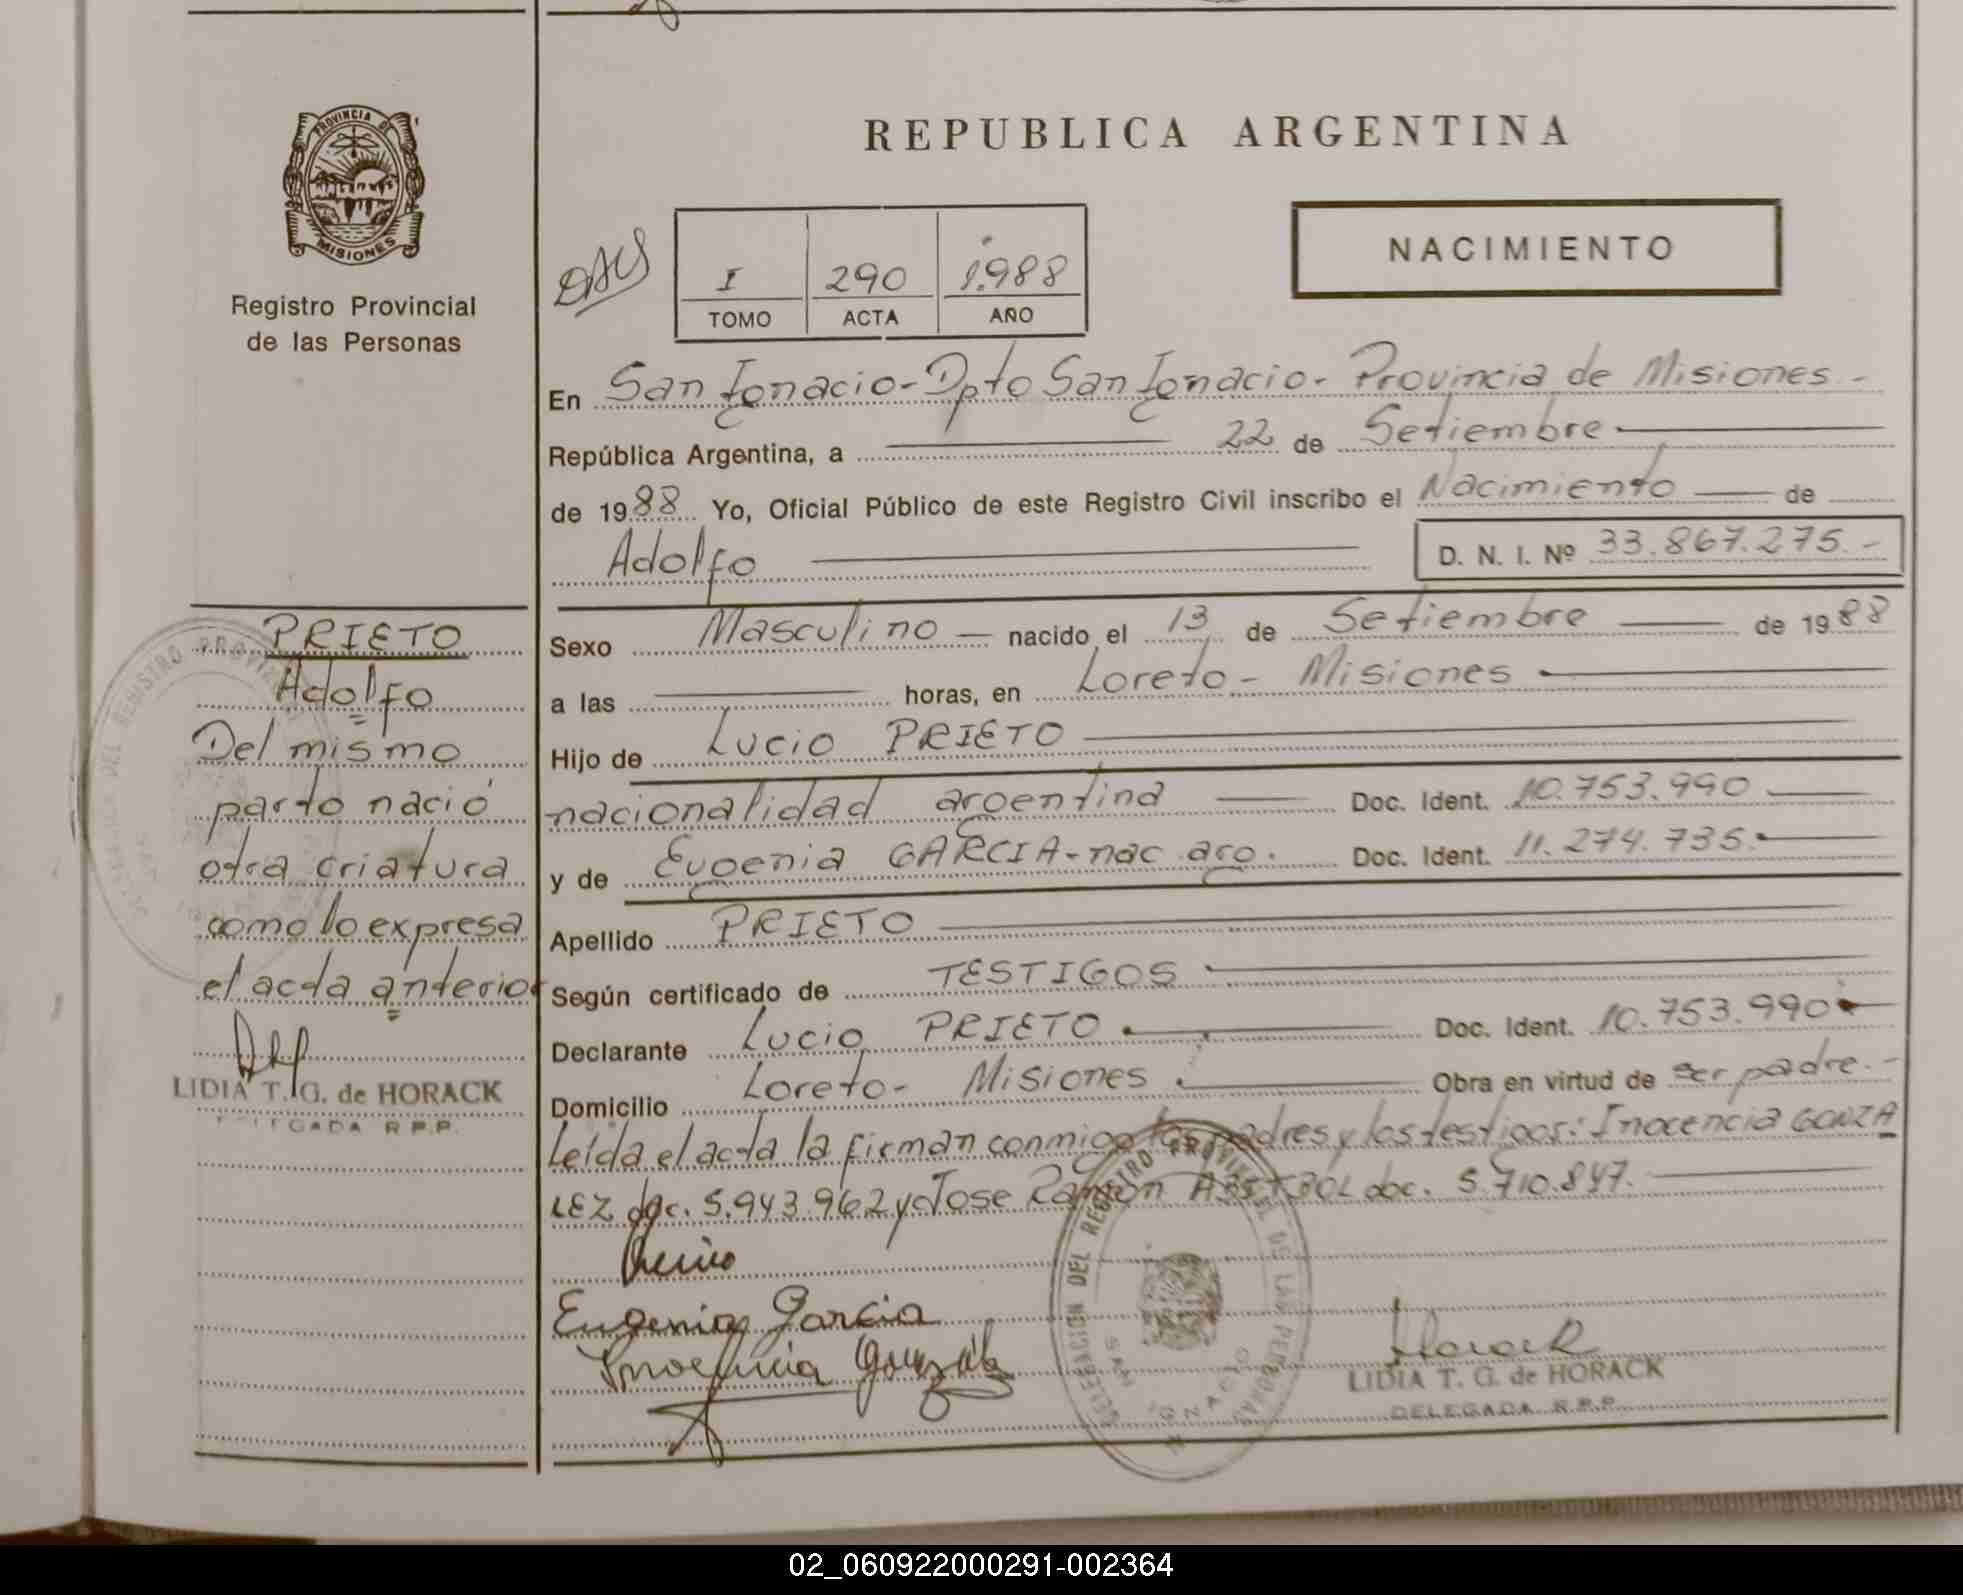 PROVINCIA DE
MISIONES
Registro Provincial
de las Personas
REPUBLICA ARGENTINA
NACIMIENTO
I 290 1.988
TOMO ACTA AÑO
En San Ignacio - Dpto San Ignacio - Provincia de Misiones -
República Argentina, a 22 de Setiembre
de 1988 Yo, Oficial Público de este Registro Civil inscribo el Nacimiento de
Adolfo
D. N. I. Nº 33.867.275.-
Sexo Masculino nacido el 13 de Setiembre de 1988
a las horas, en Loreto - Misiones
Hijo de Lucio PRIETO
nacionalidad argentina Doc. Ident. 10.753.990
y de Eugenia GARCIA - nac arg. Doc. Ident. 11.274.735.
Apellido PRIETO
Según certificado de TESTIGOS
Declarante Lucio PRIETO Doc. Ident. 10.753.990
Domicilio Loreto - Misiones Obra en virtud de ser padre.-
Leída el acta la firman conmigo los padres y los testigos: Inocencia GONZA
LEZ doc. 5.943.962 y Jose Ramón doc. 5.710.847.
Eugenia Garcia
Inocencia Gonzalez
Horack
LIDIA T. G. de HORACK
DELEGADA R.P.P.
DELEGACION DEL REGISTRO PROVINCIAL DE LAS PERSONAS
SAN IGNACIO
PRIETO
Adolfo
Del mismo
parto nació
otra criatura
como lo expresa
el acta anterior
LIDIA T. G. de HORACK
DELEGADA R.P.P.
02_060922000291-002364